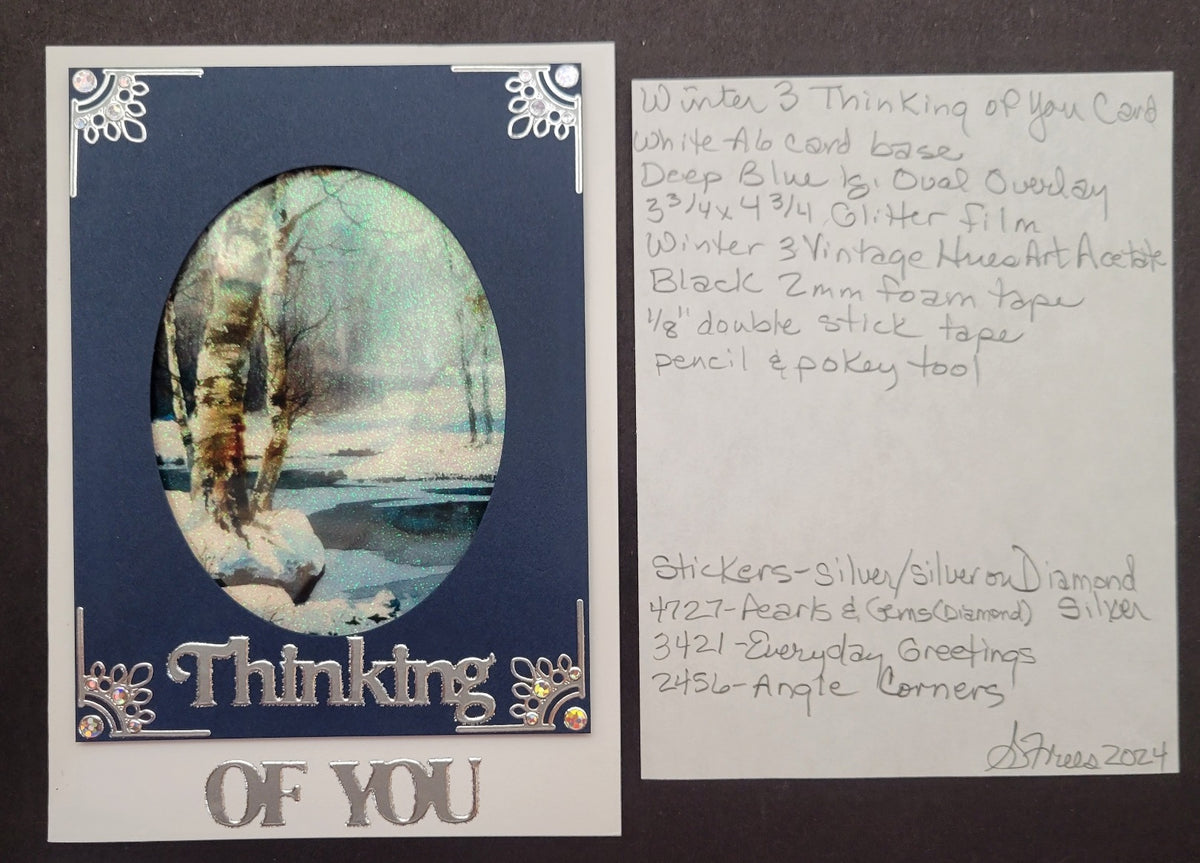 Thinking
OF YOU
Winter 3 Thinking of You Card
White A6 card base
Deep Blue lg. Oval Overlay
3 3/4 x 4 3/4 Glitter film
Winter 3 Vintage Hues Art Acetate
Black 2mm foam tape
1/8" double stick tape
pencil & pokey tool
Stickers - Silver/Silver on Diamond
4727 - Pearls & Gems (Diamond) Silver
3421 - Everyday Greetings
2456 - Angle Corners
SFrees 2024